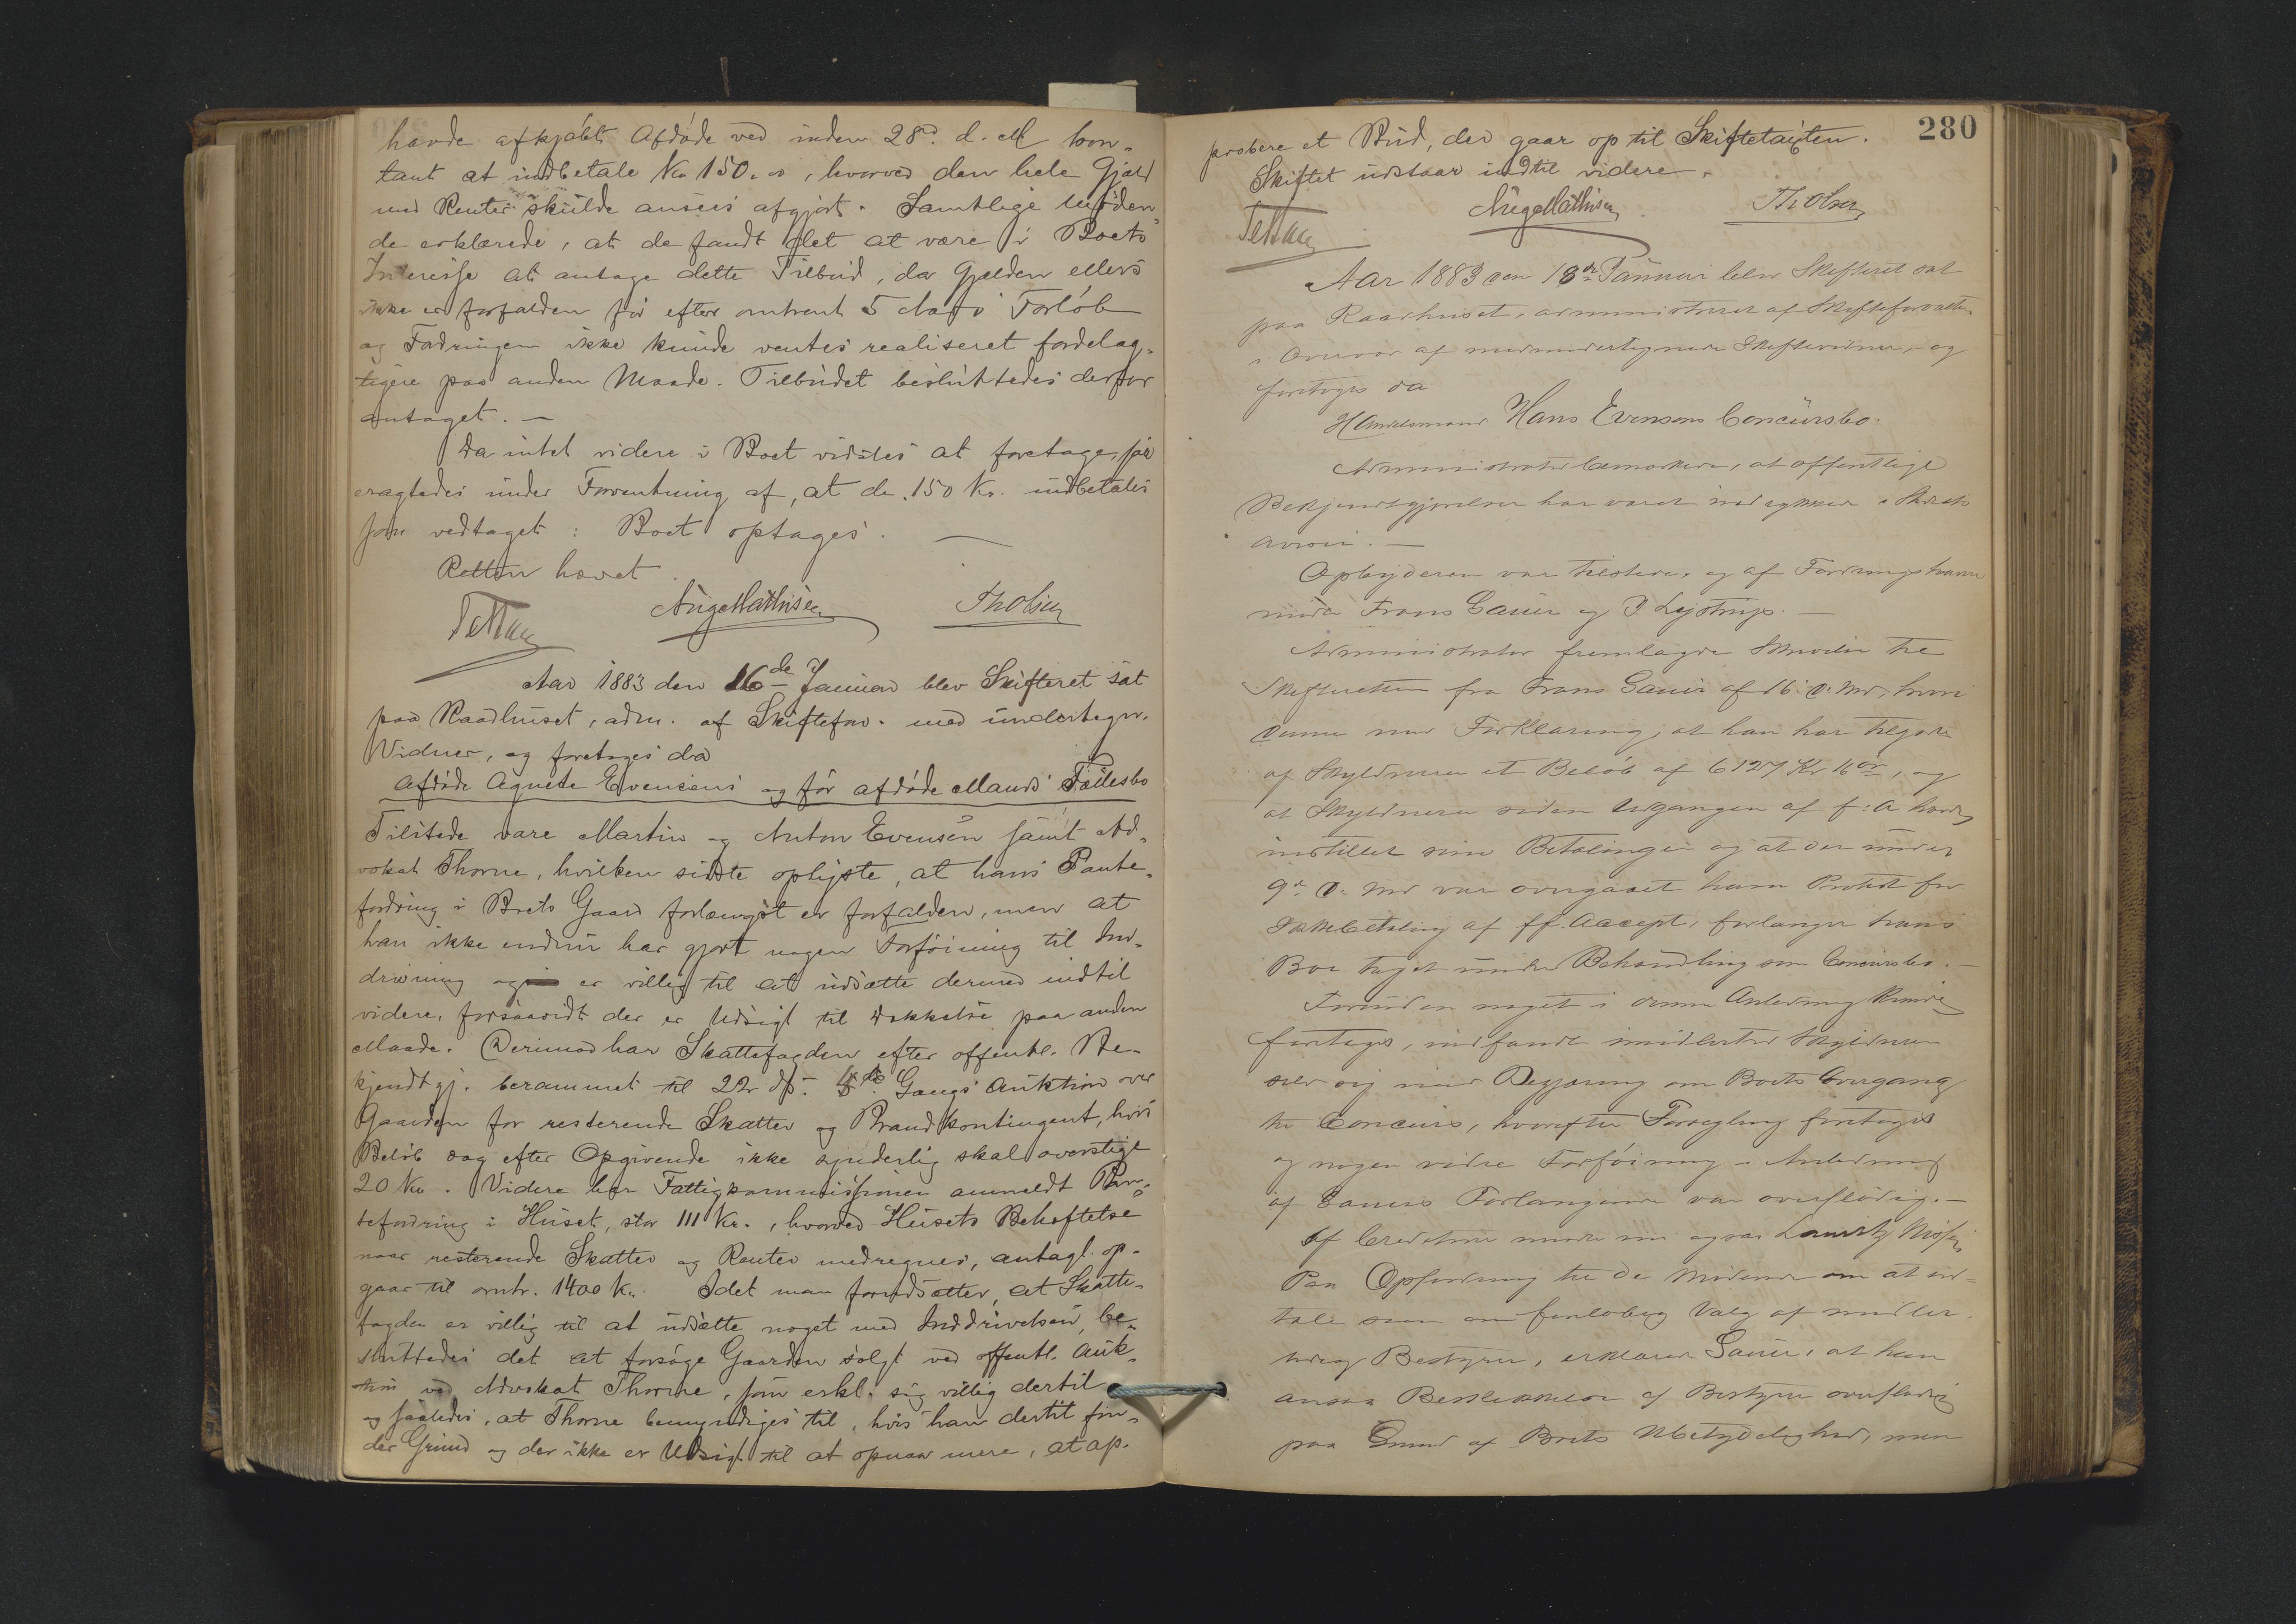 havde afkjøbt Afdøde ved inden 28de d. M kon-
tant at indbetale Kr 150.00, hvorved den hele Gjæld
med Renter skulde ansees afgjort. Samtlige Møden-
de erklærede, at de fandt det at være i Boets
Interesse at antage dette Tilbud, da Gjælden ellers
ikke er forfalden før efter omtrent 5 Aars Forløb
og Fordringen ikke kunde ventes realiseret fordelag-
tigere paa anden Maade. Tilbudet besluttedes derfor
antaget. —
Da intet videre i Boet vidstes at foretage, saa
eragtedes under Forventning af, at de 150 Kr. indbetales
som vedtaget: Boet optages. —
Retten hævet.
Aug Mathisen Th Olsen
Aar 1883 den 16de Januar blev Skifteret sat
paa Raadhuset, adm. af Skiftefor. med undertegn.
Vidner, og foretages da
Afdøde Agnete Evensens og før afdøde Mands Fællesbo
Tilstede vare Martin og Anton Evensen samt Ad-
vokat Thorne, hvilken sidste oplyste, at hans Pante-
fordring i Boets Gaard forlængst er forfalden, men at
han ikke endnu har gjort nogen Forføining til Ind-
drivning og er villig til at udsætte dermed indtil
videre, forsaavidt der er Udsigt til Dækkelse paa anden
Maade. Derimod har Skattefogden efter offentl. Be-
kjendtgj. berammet til 22 ds. Gangs Auktion over
Gaarden for resterende Skatter og Brandkontingent, hvis
Beløb dog efter Opgivende ikke synderlig skal overstige
20 Kr. Videre har Fattigkommissionen anmeldt Pan-
tefordring i Huset, stor 111 Kr., hvorved Husets Behæftelse
naar resterende Skatter og Renter medregnes, antagl. op-
gaar til omtr. 1400 Kr. Idet man forudsætter, at Skatte-
fogden er villig til at udsætte noget med Inddrivelsen, be-
sluttedes det at forsøge Gaarden solgt ved offentl. Auk-
tion ved Advokat Thorne, som erkl. sig villig dertil
og saaledes, at Thorne bemyndiges til, hvis han dertil fin-
der Grund og der ikke er Udsigt til at opnaa mere, at ap-
280
probere et Bud, der gaar op til Skiftetaxten.
Skiftet udstaar indtil videre.
Aug Mathisen Th Olsen
Aar 1883 den 18de Januar blev Skifteret sat
paa Raadhuset, administreret af Skifteforvalter
i Overvær af medundertegnede Skiftevidner, og
foretoges da
Handelsmand Hans Evensens Concursbo.
Administrator bemærkede, at offentlige
Bekjendtgjørelser har været indrykket i Stedets
Aviser. —
Opbyderen var tilstede, og af Fordringshavere
mødte Frans Sauer og —
Administrator fremlagde Skrivelse til
Skifteretten fra Frans Sauer af 16 d. Md., hvori
denne med Forklaring, at han har tilgode
af Skyldneren et Beløb af 6127 Kr 16 Ør, og
at Skyldneren siden Udgangen af f. A. havde
indstillet sine Betalinger og at der under
9de d. Md var overgaaet ham Protest for
Ikkebetaling af ff. Accept, forlanger hans
Bo taget under Behandling som Concursbo. —
Forinden noget i denne Anledning kunde
foretages, indfandt imidlertid Skyldneren
selv sig med Begjæring om Boets Overgang
til Concurs, hvorefter Forsegling foretoges
og nogen videre Forføining i Anledning
af Sauers Forlangende var overflødig. —
Af Creditorer mødte nu ogsaa Lauritz
Paa Opfordring til de Mødende om at ud-
tale sig om foreløbig Valg af midler-
tidig Bestyrer, erklærede Sauer, at han
ansaa Beskikkelse af Bestyrer overflødig
paa Grund af Boets Ubetydelighed, men